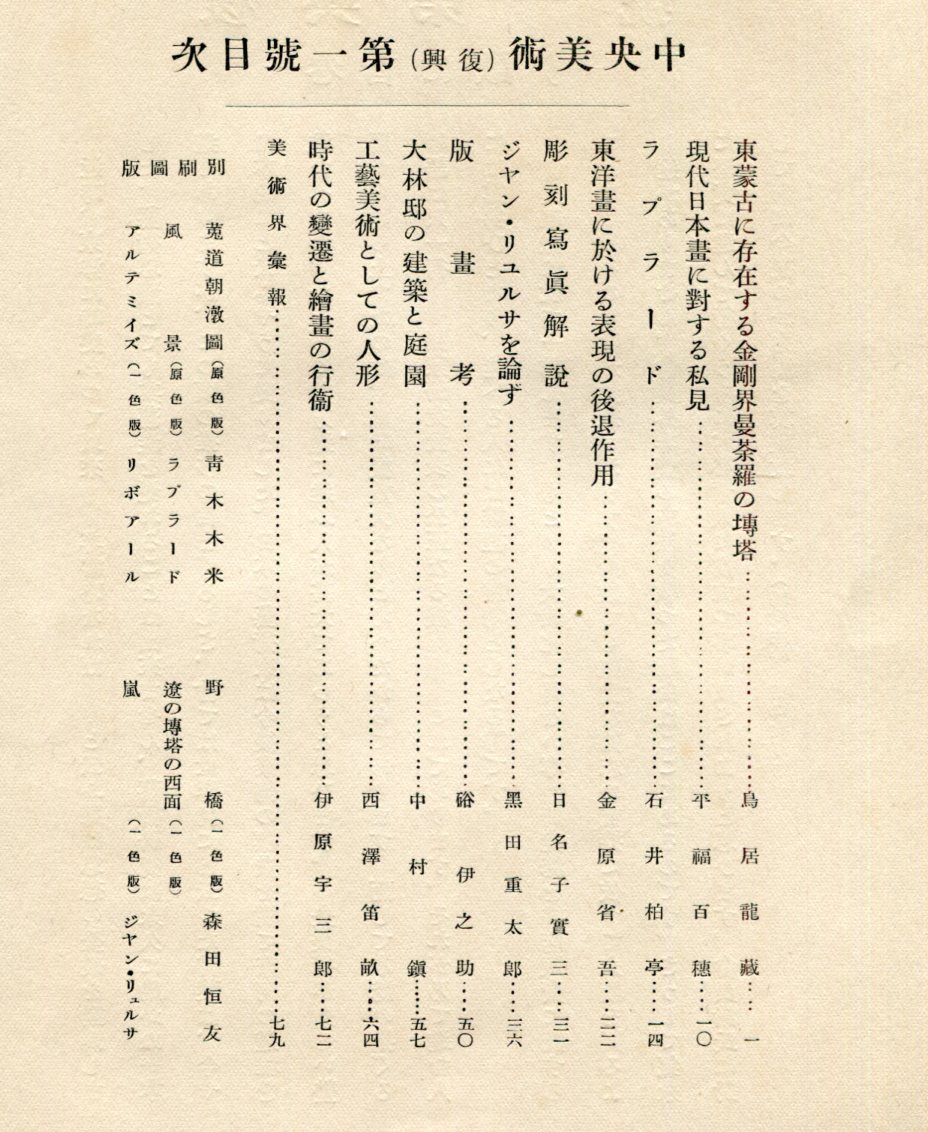 中央美術(復興)第一號目次
東蒙古に存在する金剛界曼荼羅の塼塔……鳥居龍藏……一
現代日本畫に對する私見……平福百穗……一〇
ラプラード……石井柏亭……一四
東洋畫に於ける表現の後退作用……金原省吾……二二
彫刻寫眞解說……日名子實三……三一
ジヤン・リユルサを論ず……黑田重太郎……三六
版畫考……硲伊之助……五〇
大林邸の建築と庭園……中村鎭……五七
工藝美術としての人形……西澤笛畝……六四
時代の變遷と繪畫の行衞……伊原宇三郎……七二
美術界彙報……七九
別刷圖版
菟道朝澂圖(原色版)靑木木米
野橋(一色版)森田恒友
風景(原色版)ラプラード
遼の塼塔の西面(一色版)
アルテミイズ(一色版)リボアール
嵐(一色版)ジヤン・リュルサ